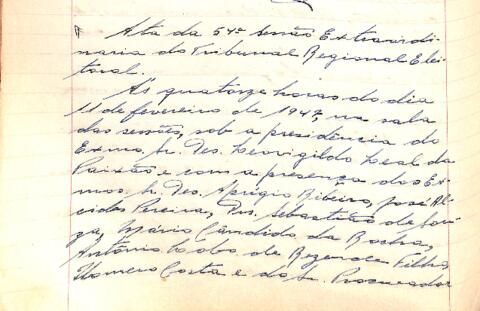 Ata da 54ª sessão Extraordi-
naria do Tribunal Regional Elei-
toral.
Ás quatorze horas do dia
11 de fevereiro de 1947, na sala
das sessões, sob a presidência do
Exmo. Sr. Des. Leovigildo Leal da
Paixão e com a presença dos Ex-
mos. Sr. Des. Aprígio Ribeiro, José Al-
cides Pereira, Drs. Sebastião de Sou-
za, Mário Candido da Rocha,
Antônio Lobo de Rezende Filho,
Homero Costa e do Sr. Procurador